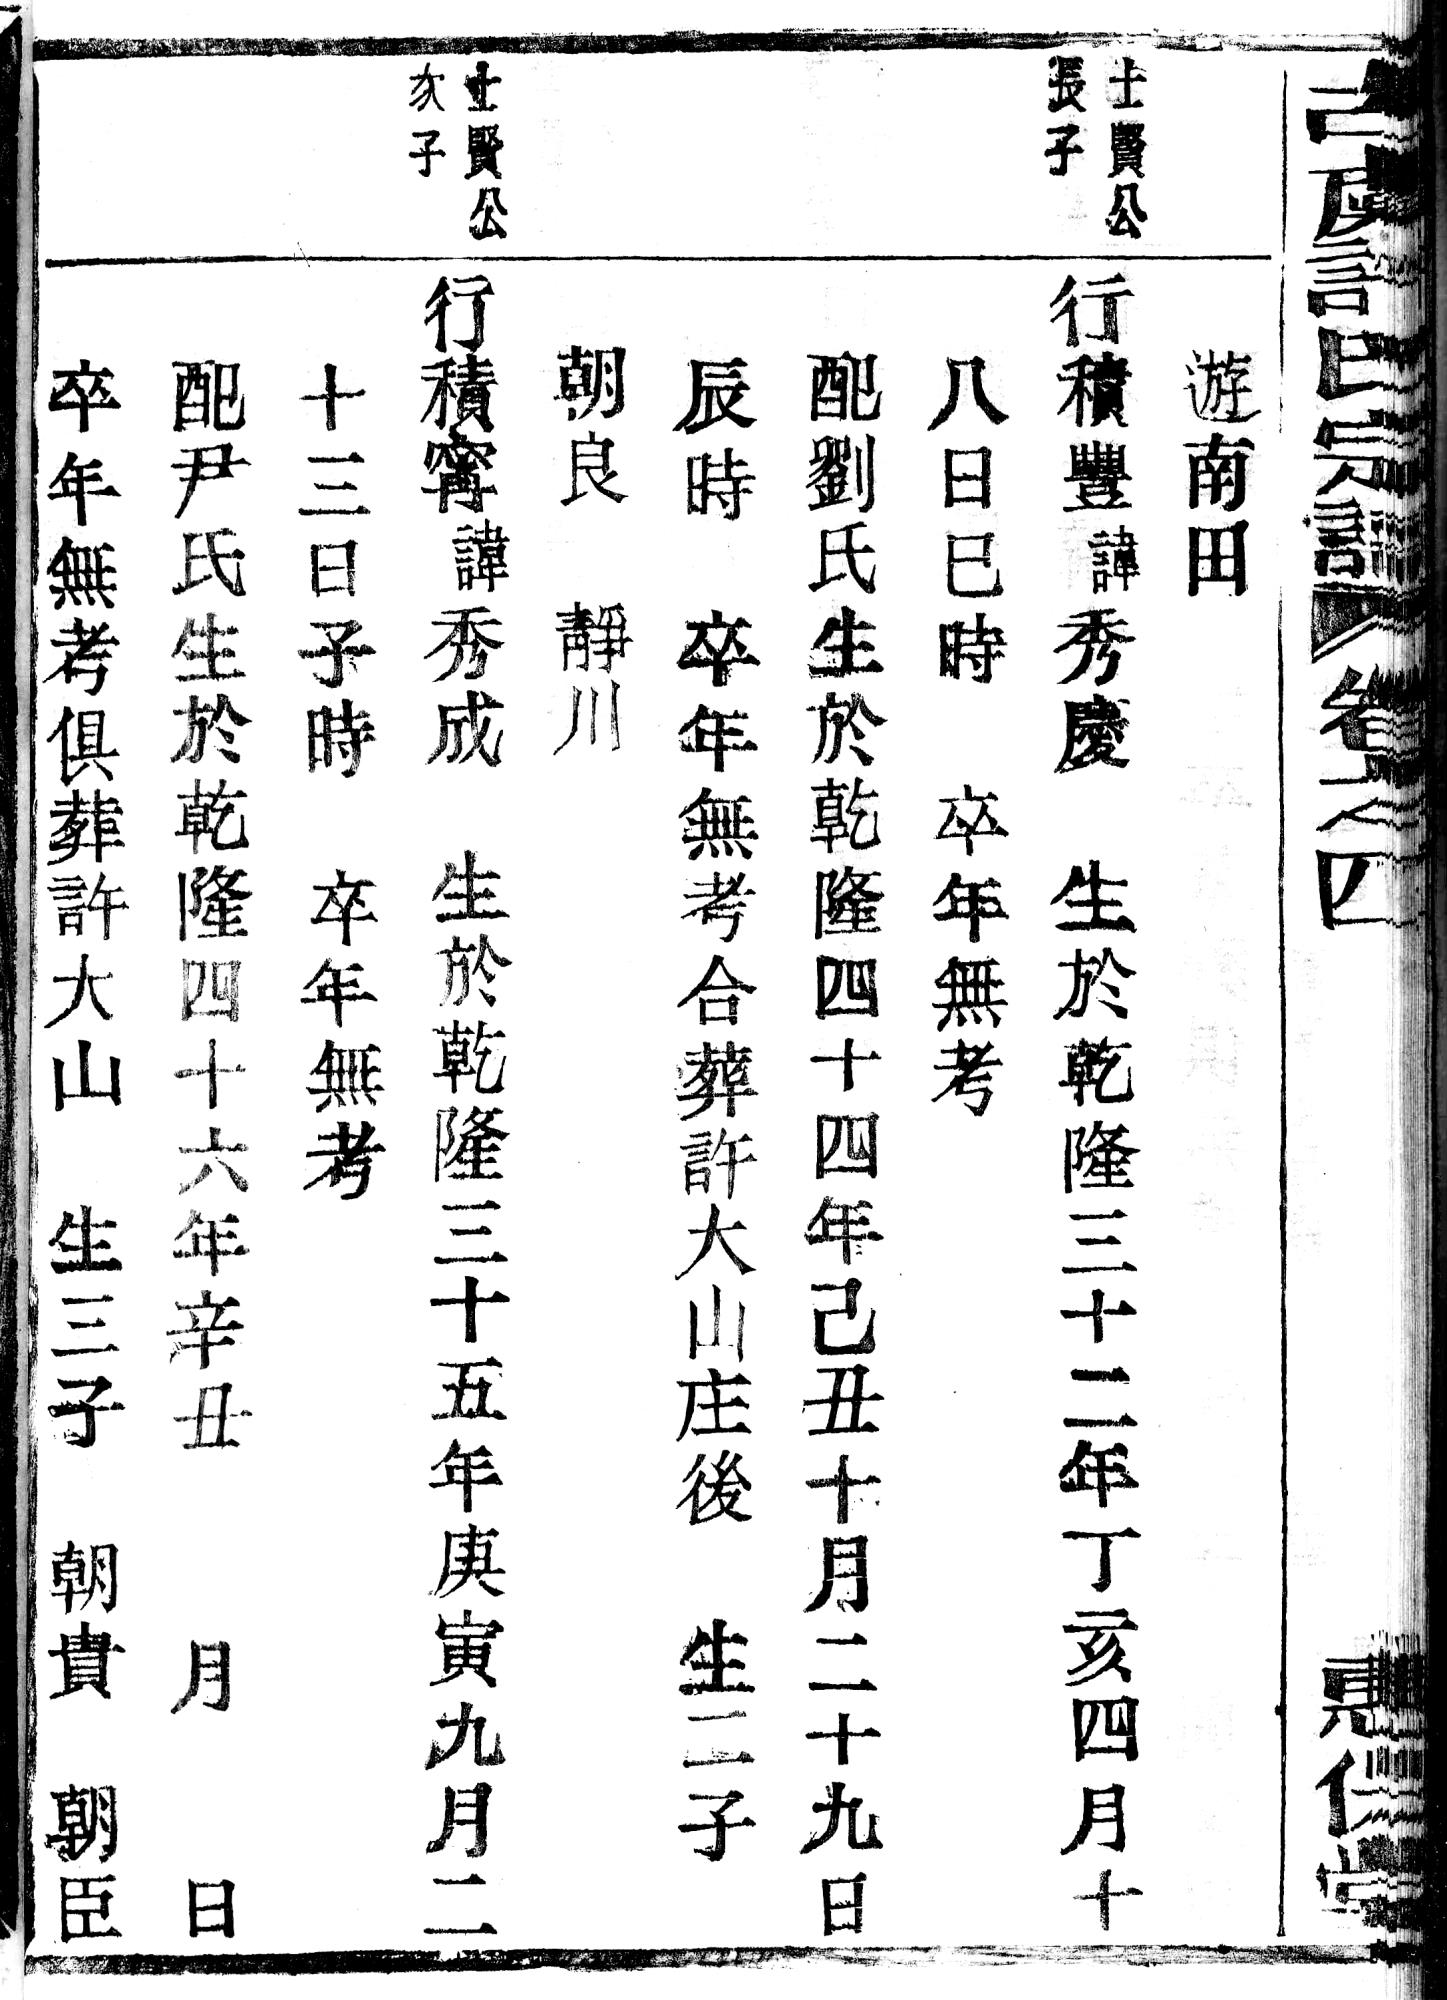 卷之四
遊南田
士賢公
長子
行積豐諱秀慶 生於乾隆三十二年丁亥四月十
八日巳時 卒年無考
配劉氏生於乾隆四十四年己丑十月二十九日
辰時 卒年無考合葬許大山庄後 生二子
朝良 靜川
士賢公
次子
行積寗諱秀成 生於乾隆三十五年庚寅九月二
十三日子時 卒年無考
配尹氏生於乾隆四十六年辛丑 月 日
卒年無考俱葬許大山 生三子 朝貴 朝臣